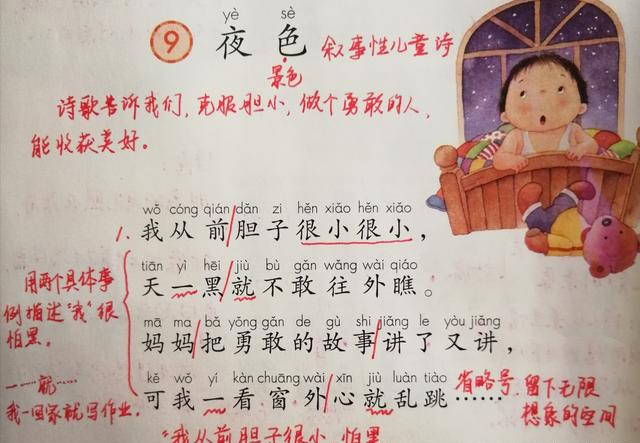 yè sè
9 夜色 叙事性儿童诗
景色
诗歌告诉我们，克服胆小，做个勇敢的人，
能收获美好。
wǒ cóng qián dǎn zi hěn xiǎo hěn xiǎo
1. 我从前/胆子很小很小，
tiān yì hēi jiù bù gǎn wǎng wài qiáo
天一黑/就不敢往外瞧。
用两个具体事
例描述“我”很
怕黑。
mā ma bǎ yǒng gǎn de gù shi jiǎng le yòu jiǎng
妈妈/把勇敢的故事/讲了又讲，
一……就……
我一回家就写作业。
kě wǒ yí kàn chuāng wài xīn jiù luàn tiào
可我一看窗外/心就乱跳……
省略号，留下无限
想象的空间
“我从前胆子很小，怕黑